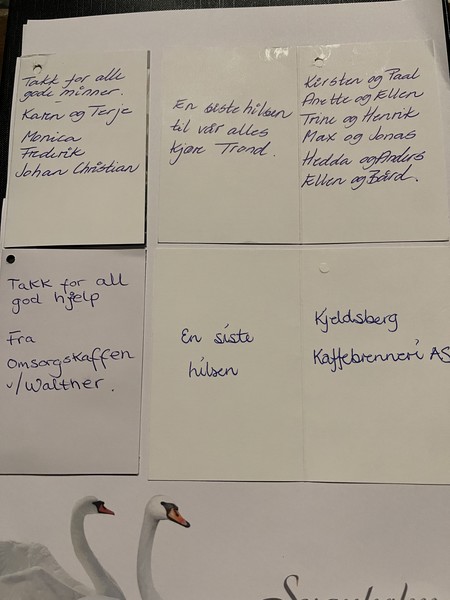 Takk for alle
gode minner.
Karen og Terje
Monica
Frederik
Johan Christian
En siste hilsen
til vår alles
kjære Trond.
Kirsten og Paal
Anette og Ellen
Trine og Henrik
Max og Jonas
Hedda og Anders
Ellen og Bård.
Takk for all
god hjelp
Fra
Omsorgskaffen
v/Walther.
En siste
hilsen
Kjeldsberg
Kaffebrenneri AS